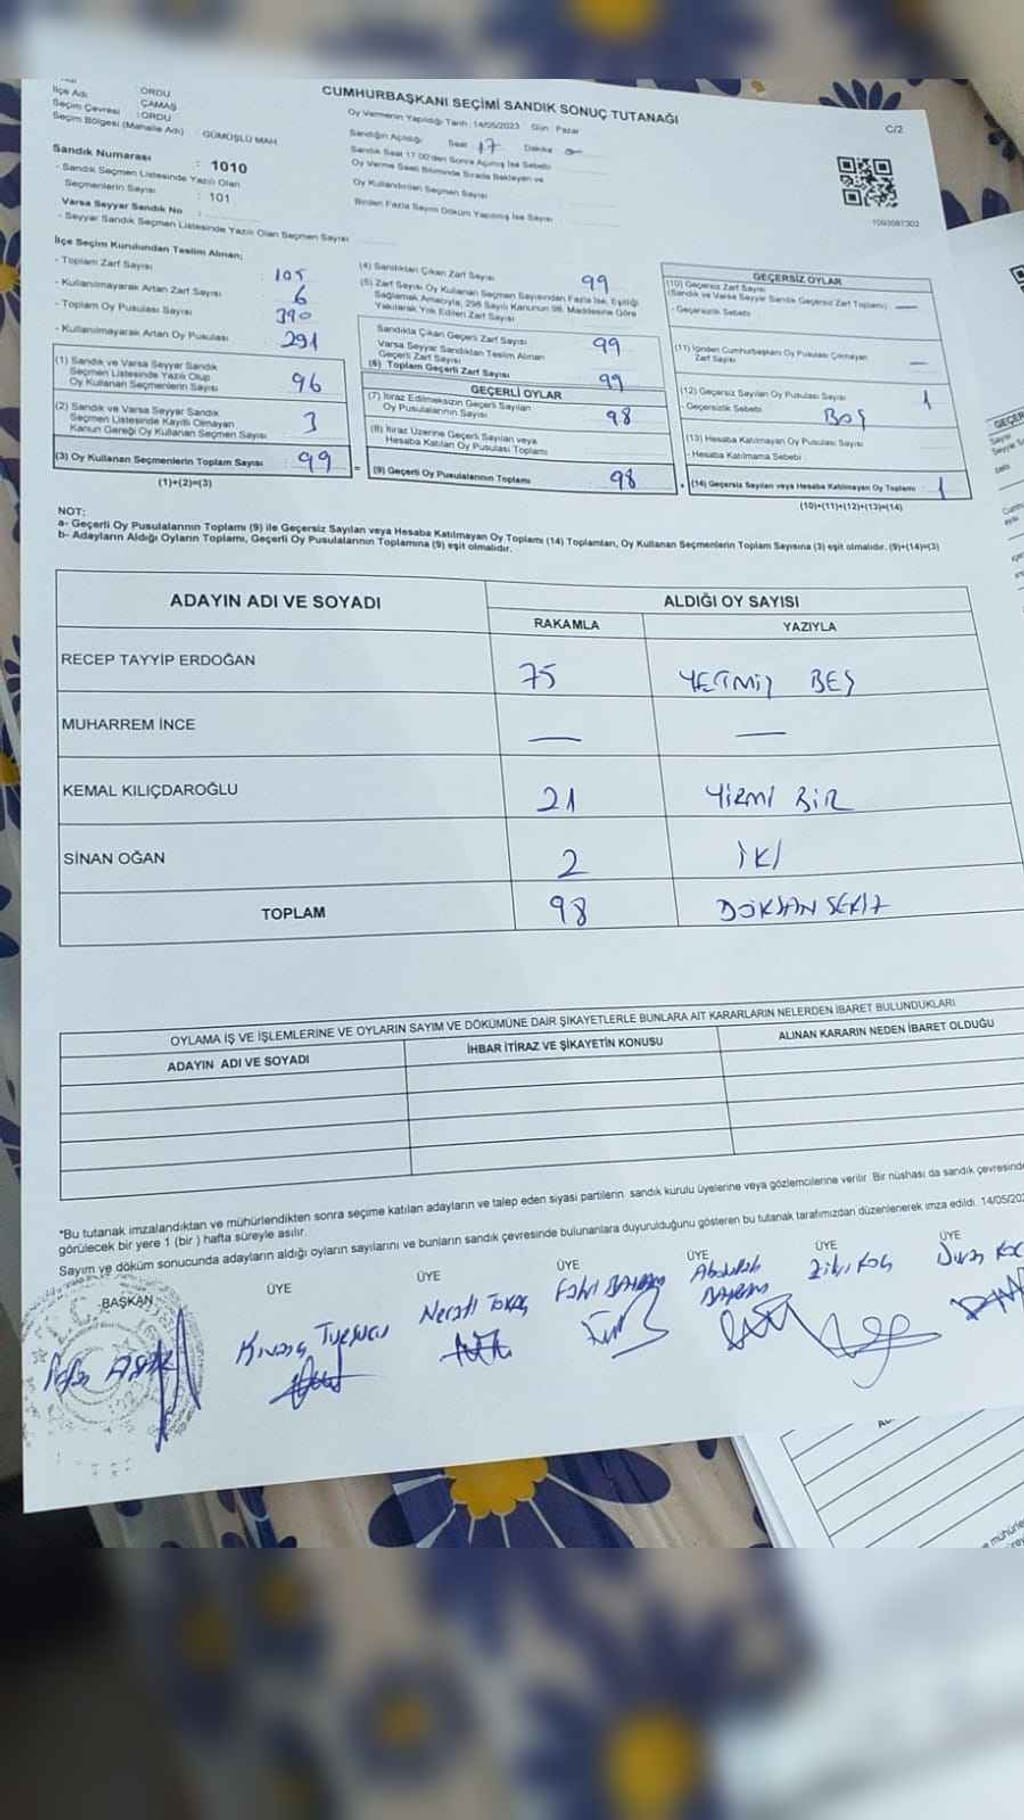 CUMHURBAŞKANI SEÇİMİ SANDIK SONUÇ TUTANAĞI
C/2
İlçe Adı ORDU
Seçim Çevresi ÇAMAŞ
Seçim Bölgesi (Mahalle Adı) : ORDU
GÜMÜŞLÜ MAH
Oy Vermenin Yapıldığı Tarih : 14/05/2023 Gün : Pazar
Sandığın Açıldığı Saat 17 Dakika
Sandık Saat 17.00'den Sonra Açılmış İse Sebebi
Oy Verme Saati Bitiminde Sırada Bekleyen ve
Oy Kullandırılan Seçmen Sayısı
Birden Fazla Sayım Döküm Yapılmış İse Sayısı
Sandık Numarası : 1010
- Sandık Seçmen Listesinde Yazılı Olan
Seçmenlerin Sayısı : 101
Varsa Seyyar Sandık No :
- Seyyar Sandık Seçmen Listesinde Yazılı Olan Seçmen Sayısı
İlçe Seçim Kurulundan Teslim Alınan;
- Toplam Zarf Sayısı : 105
- Kullanılmayarak Artan Zarf Sayısı : 6
- Toplam Oy Pusulası Sayısı 390
- Kullanılmayarak Artan Oy Pusulası 291
(1) Sandık ve Varsa Seyyar Sandık
Seçmen Listesinde Yazılı Olup
Oy Kullanan Seçmenlerin Sayısı 96
(2) Sandık ve Varsa Seyyar Sandık
Seçmen Listesinde Kayıtlı Olmayan
Kanun Gereği Oy Kullanan Seçmen Sayısı 3
(3) Oy Kullanan Seçmenlerin Toplam Sayısı 99 =
(1)+(2)=(3)
(4) Sandıktan Çıkan Zarf Sayısı 99
(5) Zarf Sayısı Oy Kullanan Seçmen Sayısından Fazla İse, Eşitliği
Sağlamak Amacıyla, 298 Sayılı Kanunun 98. Maddesine Göre
Yakılarak Yok Edilen Zarf Sayısı
Sandıkta Çıkan Geçerli Zarf Sayısı 99
Varsa Seyyar Sandıktan Teslim Alınan
Geçerli Zarf Sayısı
(6) Toplam Geçerli Zarf Sayısı 99
GEÇERLİ OYLAR
(7) İtiraz Edilmeksizin Geçerli Sayılan
Oy Pusulalarının Sayısı 98
(8) İtiraz Üzerine Geçerli Sayılan veya
Hesaba Katılan Oy Pusulası Toplamı
(9) Geçerli Oy Pusulalarının Toplamı 98 +
GEÇERSİZ OYLAR
(10) Geçersiz Zarf Sayısı
(Sandık ve Varsa Seyyar Sandık Geçersiz Zarf Toplamı) —
- Geçersizlik Sebebi
(11) İçinden Cumhurbaşkanı Oy Pusulası Çıkmayan
Zarf Sayısı —
(12) Geçersiz Sayılan Oy Pusulası Sayısı 1
- Geçersizlik Sebebi BOŞ
(13) Hesaba Katılmayan Oy Pusulası Sayısı
- Hesaba Katılmama Sebebi
(14) Geçersiz Sayılan veya Hesaba Katılmayan Oy Toplamı 1
(10)+(11)+(12)+(13)=(14)
NOT:
a- Geçerli Oy Pusulalarının Toplamı (9) ile Geçersiz Sayılan veya Hesaba Katılmayan Oy Toplamı (14) Toplamları, Oy Kullanan Seçmenlerin Toplam Sayısına (3) eşit olmalıdır. (9)+(14)=(3)
b- Adayların Aldığı Oyların Toplamı, Geçerli Oy Pusulalarının Toplamına (9) eşit olmalıdır.
ADAYIN ADI VE SOYADI ALDIĞI OY SAYISI
RAKAMLA YAZIYLA
RECEP TAYYİP ERDOĞAN 75 YETMİŞ BEŞ
MUHARREM İNCE — —
KEMAL KILIÇDAROĞLU 21 YİRMİ BİR
SİNAN OĞAN 2 İKİ
TOPLAM 98 DOKSAN SEKİZ
OYLAMA İŞ VE İŞLEMLERİNE VE OYLARIN SAYIM VE DÖKÜMÜNE DAİR ŞİKAYETLERLE BUNLARA AİT KARARLARIN NELERDEN İBARET BULUNDUKLARI
ADAYIN ADI VE SOYADI İHBAR İTİRAZ VE ŞİKAYETİN KONUSU ALINAN KARARIN NEDEN İBARET OLDUĞU
*Bu tutanak imzalandıktan ve mühürlendikten sonra seçime katılan adayların ve talep eden siyasi partilerin sandık kurulu üyelerine veya gözlemcilerine verilir. Bir nüshası da sandık çevresinde
görülecek bir yere 1 (bir ) hafta süreyle asılır.
Sayım ve döküm sonucunda adayların aldığı oyların sayılarını ve bunların sandık çevresinde bulunanlara duyurulduğunu gösteren bu tutanak tarafımızdan düzenlenerek imza edildi. 14/05/202
BAŞKAN ÜYE ÜYE ÜYE ÜYE ÜYE ÜYE
Necati Tokaş
Fahri BAYRAM
Abdullah BAYRAM
Zeki Koç